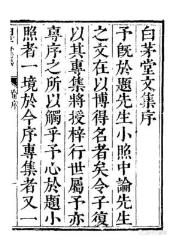 白茅堂文集序
予既於題先生小照中論先生
之文在以博得名者矣令子復
以其專集將授梓行世屬予亦
辱序之所以觸乎予心於題小
照者一境於今序專集者又一